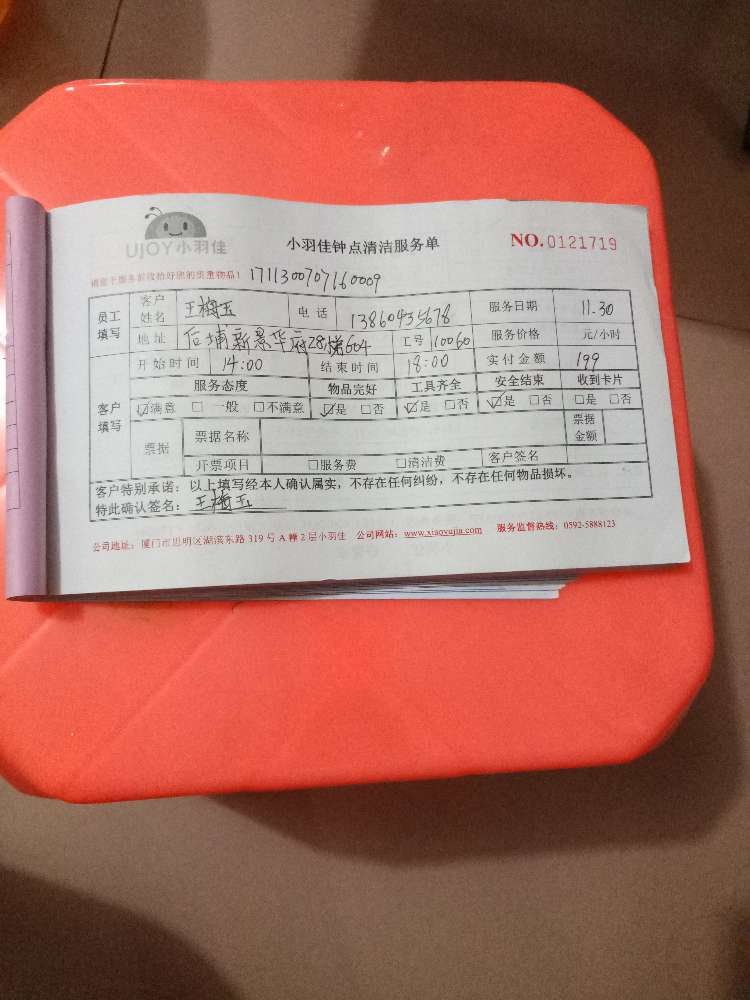 UJOY小羽佳
小羽佳钟点清洁服务单
NO.0121719
请您于服务前收拾好您的贵重物品! 1711300707160009
员工填写 客户姓名 王梅玉 电话 13860435678 服务日期 11.30
地址 后埔新景华府28梯604 工号 10060 服务价格 元/小时
客户填写 开始时间 14:00 结束时间 18:00 实付金额 199
服务态度 物品完好 工具齐全 安全结束 收到卡片
☑满意 □一般 □不满意 ☑是 □否 ☑是 □否 ☑是 □否 □是 □否
票据 票据名称 票据金额
开票项目 □服务费 □清洁费 客户签名
客户特别承诺:以上填写经本人确认属实,不存在任何纠纷,不存在任何物品损坏。
特此确认签名:王梅玉
公司地址:厦门市思明区湖滨东路 319 号 A 幢 2 层小羽佳 公司网站:www.xiaoyujia.com 服务监督热线:0592-5888123